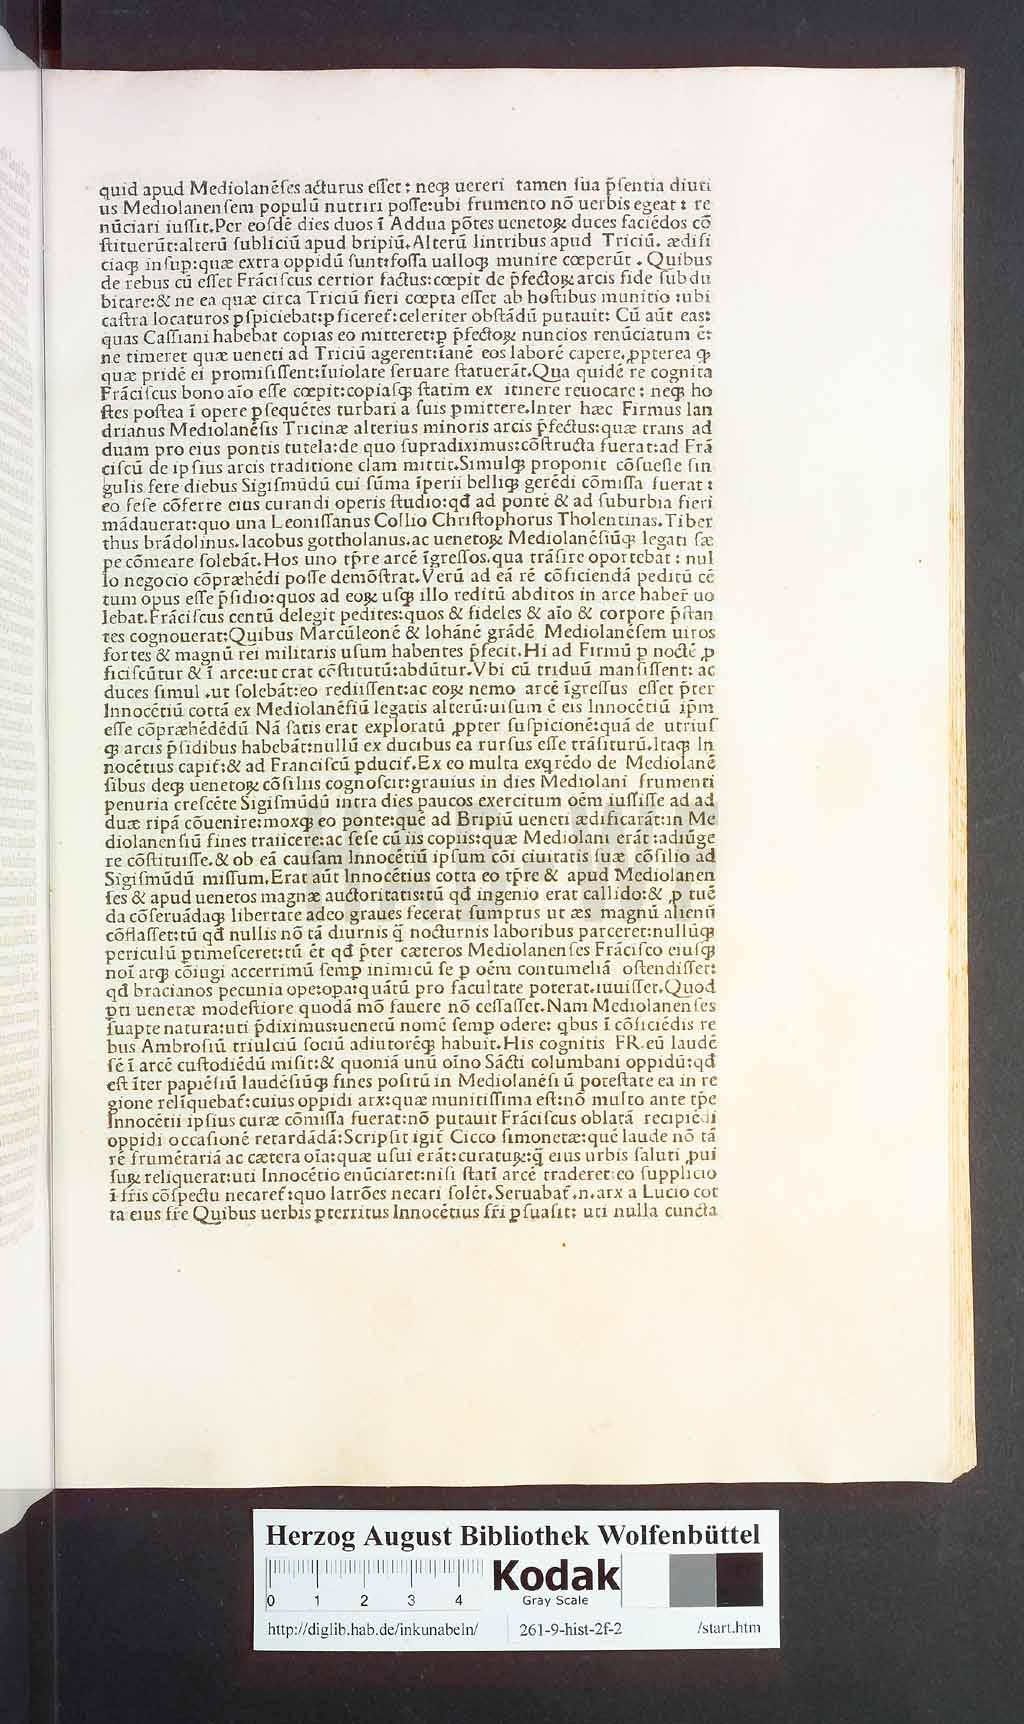 quid apud Mediolanēſes acturus eſſet: neqꝫ uereri tamen ſua p̄ſentia diuti
us Mediolanenſem populū nutriri poſſe:ubi frumento nō uerbis egeat: re
nūciari iuſſit.Per eoſdē dies duos ī Addua pōtes uenetoꝝ duces faciēdos cō
ſtituerūt:alterū ſubliciū apud bripiū.Alterū lintribus apud Triciū. ædifi
ciaqꝫ inſup:quæ extra oppidū ſunt:foſſa ualloqꝫ munire cœperūt . Quibus
de rebus cū eſſet Frāciſcus certior factus:cœpit de p̄fectoꝝ arcis fide ſubdu
bitare:& ne ea quæ circa Triciū fieri cœpta eſſet ab hoſtibus munitio :ubi
caſtra locaturos ꝑſpiciebat:ꝑficeret̄:celeriter obſtādū putauit: Cū aūt eas:
quas Caſſiani habebat copias eo mitteret:ꝑ p̄fectoꝝ nuncios renūciatum ē:
ne timeret quæ ueneti ad Triciū agerent:ianē eos laborē capere.ꝓpterea qꝫ
quæ pridē ei promiſiſſent:īuiolate ſeruare ſtatuerāt.Qua quidē re cognita
Frāciſcus bono aīo eſſe cœpit:copiaſqꝫ ſtatim ex itinere reuocare: neqꝫ ho
ſtes poſtea ī opere ꝑſequētes turbari a ſuis ꝑmittere.Inter hæc Firmus lan
drianus Mediolanēſis Tricinæ alterius minoris arcis p̄fectus:quæ trans ad
duam pro eius pontis tutela:de quo ſupradiximus:cōſtructa fuerat:ad Frā
ciſcū de ipſius arcis traditione clam mittit.Simulqꝫ proponit cōſueſſe ſin
gulis fere diebus Sigiſmūdū cui ſūma īperii belliqꝫ gerēdi cōmiſſa fuerat:
eo ſeſe cōferre eius curandi operis ſtudio:qđ ad pontē & ad ſuburbia fieri
mādauerat:quo una Leoniſſanus Coſſio Chriſtophorus Tholentinas.Tiber
thus brādolinus.Iacobus gottholanus.ac uenetoꝝ Mediolanēſiūqꝫ legati ſæ
pe cōmeare ſolebāt.Hos uno tp̄re arcē īgreſſos.qua trāſire oportebat: nul
lo negocio cōpræhēdi poſſe demōſtrat.Verū ad eā rē cōficiendā peditū cē
tum opus eſſe p̄ſidio:quos ad eoꝝ uſqꝫ illo reditū abditos in arce haber̄ uo
lebat.Frāciſcus centū delegit pedites:quos & fideles & aīo & corpore p̄ſtan
tes cognouerat:Quibus Marcūleonē & Iohānē grādē Mediolanēſem uiros
fortes & magnū rei militaris uſum habentes p̄fecit.Hi ad Firmū ꝑ noctē ꝓ
ficiſcūtur & ī arce:ut erat cōſtitutū:abdūtur.Vbi cū triduū manſiſſent: ac
duces ſimul .ut ſolebāt:eo rediiſſent:ac eoꝝ nemo arcē īgreſſus eſſet p̄ter
Innocētiū cottā ex Mediolanēſiū legatis alterū:uiſum ē eis Innocētiū ip̄m
eſſe cōpræhēdēdū Nā ſatis erat exploratū ꝓpter ſuſpicionē:quā de utriuſ
qꝫ arcis p̄ſidibus habebāt:nullū ex ducibus ea rurſus eſſe trāſiturū.Itaqꝫ In
nocētius capit̄:& ad Franciſcū ꝑducit̄.Ex eo multa exqrēdo de Mediolanē
ſibus deqꝫ uenetoꝝ cōſiliis cognoſcit:grauius in dies Mediolani frumenti
penuria creſcēte Sigiſmūdū intra dies paucos exercitum oēm iuſſiſſe ad ad
duæ ripā cōuenire:moxqꝫ eo ponte:quē ad Bripiū ueneti ædificarāt:in Me
diolanenſiū fines traiicere:ac ſeſe cū iis copiis:quæ Mediolani erāt:adiūge
re cōſtituiſſe.& ob eā cauſam Innocētiū ipſum cōi ciuitatis ſuæ cōſilio ad
Sigiſmūdū miſſum.Erat aūt Innocētius cotta eo tp̄re & apud Mediolanen
ſes & apud uenetos magnæ auctoritatis:tū qđ ingenio erat callido:& ꝓ tuē
da cōſeruādaqꝫ libertate adeo graues fecerat ſumptus ut æs magnū alienū
cōflaſſet:tū qđ nullis nō tā diurnis q̄ nocturnis laboribus parceret:nullūqꝫ
periculū ꝑtimeſceret:tū ēt qđ p̄ter cæteros Mediolanenſes Frāciſco eiuſqꝫ
noī atqꝫ cōiugi accerrimū ſemꝑ inimicū ſe ꝑ oēm contumeliā oſtendiſſet:
qđ bracianos pecunia ope:opa:quātū pro facultate poterat.iuuiſſet.Quod
ꝑti uenetæ modeſtiore quodā mō fauere nō ceſſaſſet.Nam Mediolanenſes
ſuapte natura:uti p̄diximus:uenetū nomē ſemꝑ odere: qbus ī cōficiēdis re
bus Ambroſiū triulciū ſociū adiutorēqꝫ habuit.His cognitis FR.eū laudē
ſē ī arcē cuſtodiēdū miſit:& quoniā unū oīno Sācti columbani oppidū:qđ
eſt īter papiēſiū laudēſiūqꝫ fines poſitū in Mediolanēſiū poteſtate ea in re
gione relīquebat̄:cuius oppidi arx:quæ munitiſſima eſt:nō multo ante tp̄e
Innocētii ipſius curæ cōmiſſa fuerat:nō putauit Frāciſcus oblatā recipiēdi
oppidi occaſionē retardādā:Scripſit igit̄ Cicco ſimonetæ:quē laude nō tā
rē frumētariā ac cætera oīa:quæ uſui erāt:curatuꝝ:q̄ eius urbis ſaluti ꝓui
ſuꝝ reliquerat:uti Innocētio enūciaret:niſi ſtatī arcē traderet:eo ſupplicio
ī fr̄is cōſpectu necaret̄:quo latrōes necari ſolēt.Seruabat̄.n.arx a Lucio cot
ta eius fr̄e Quibus uerbis ꝑterritus Innocētius fr̄i ꝑſuaſit: uti nulla cuncta
HAB-WF
Herzog August Bibliothek Wolfenbüttel
0 1 2 3 4
Kodak
Gray Scale
http://diglib.hab.de/inkunabeln/ 261-9-hist-2f-2 /start.htm